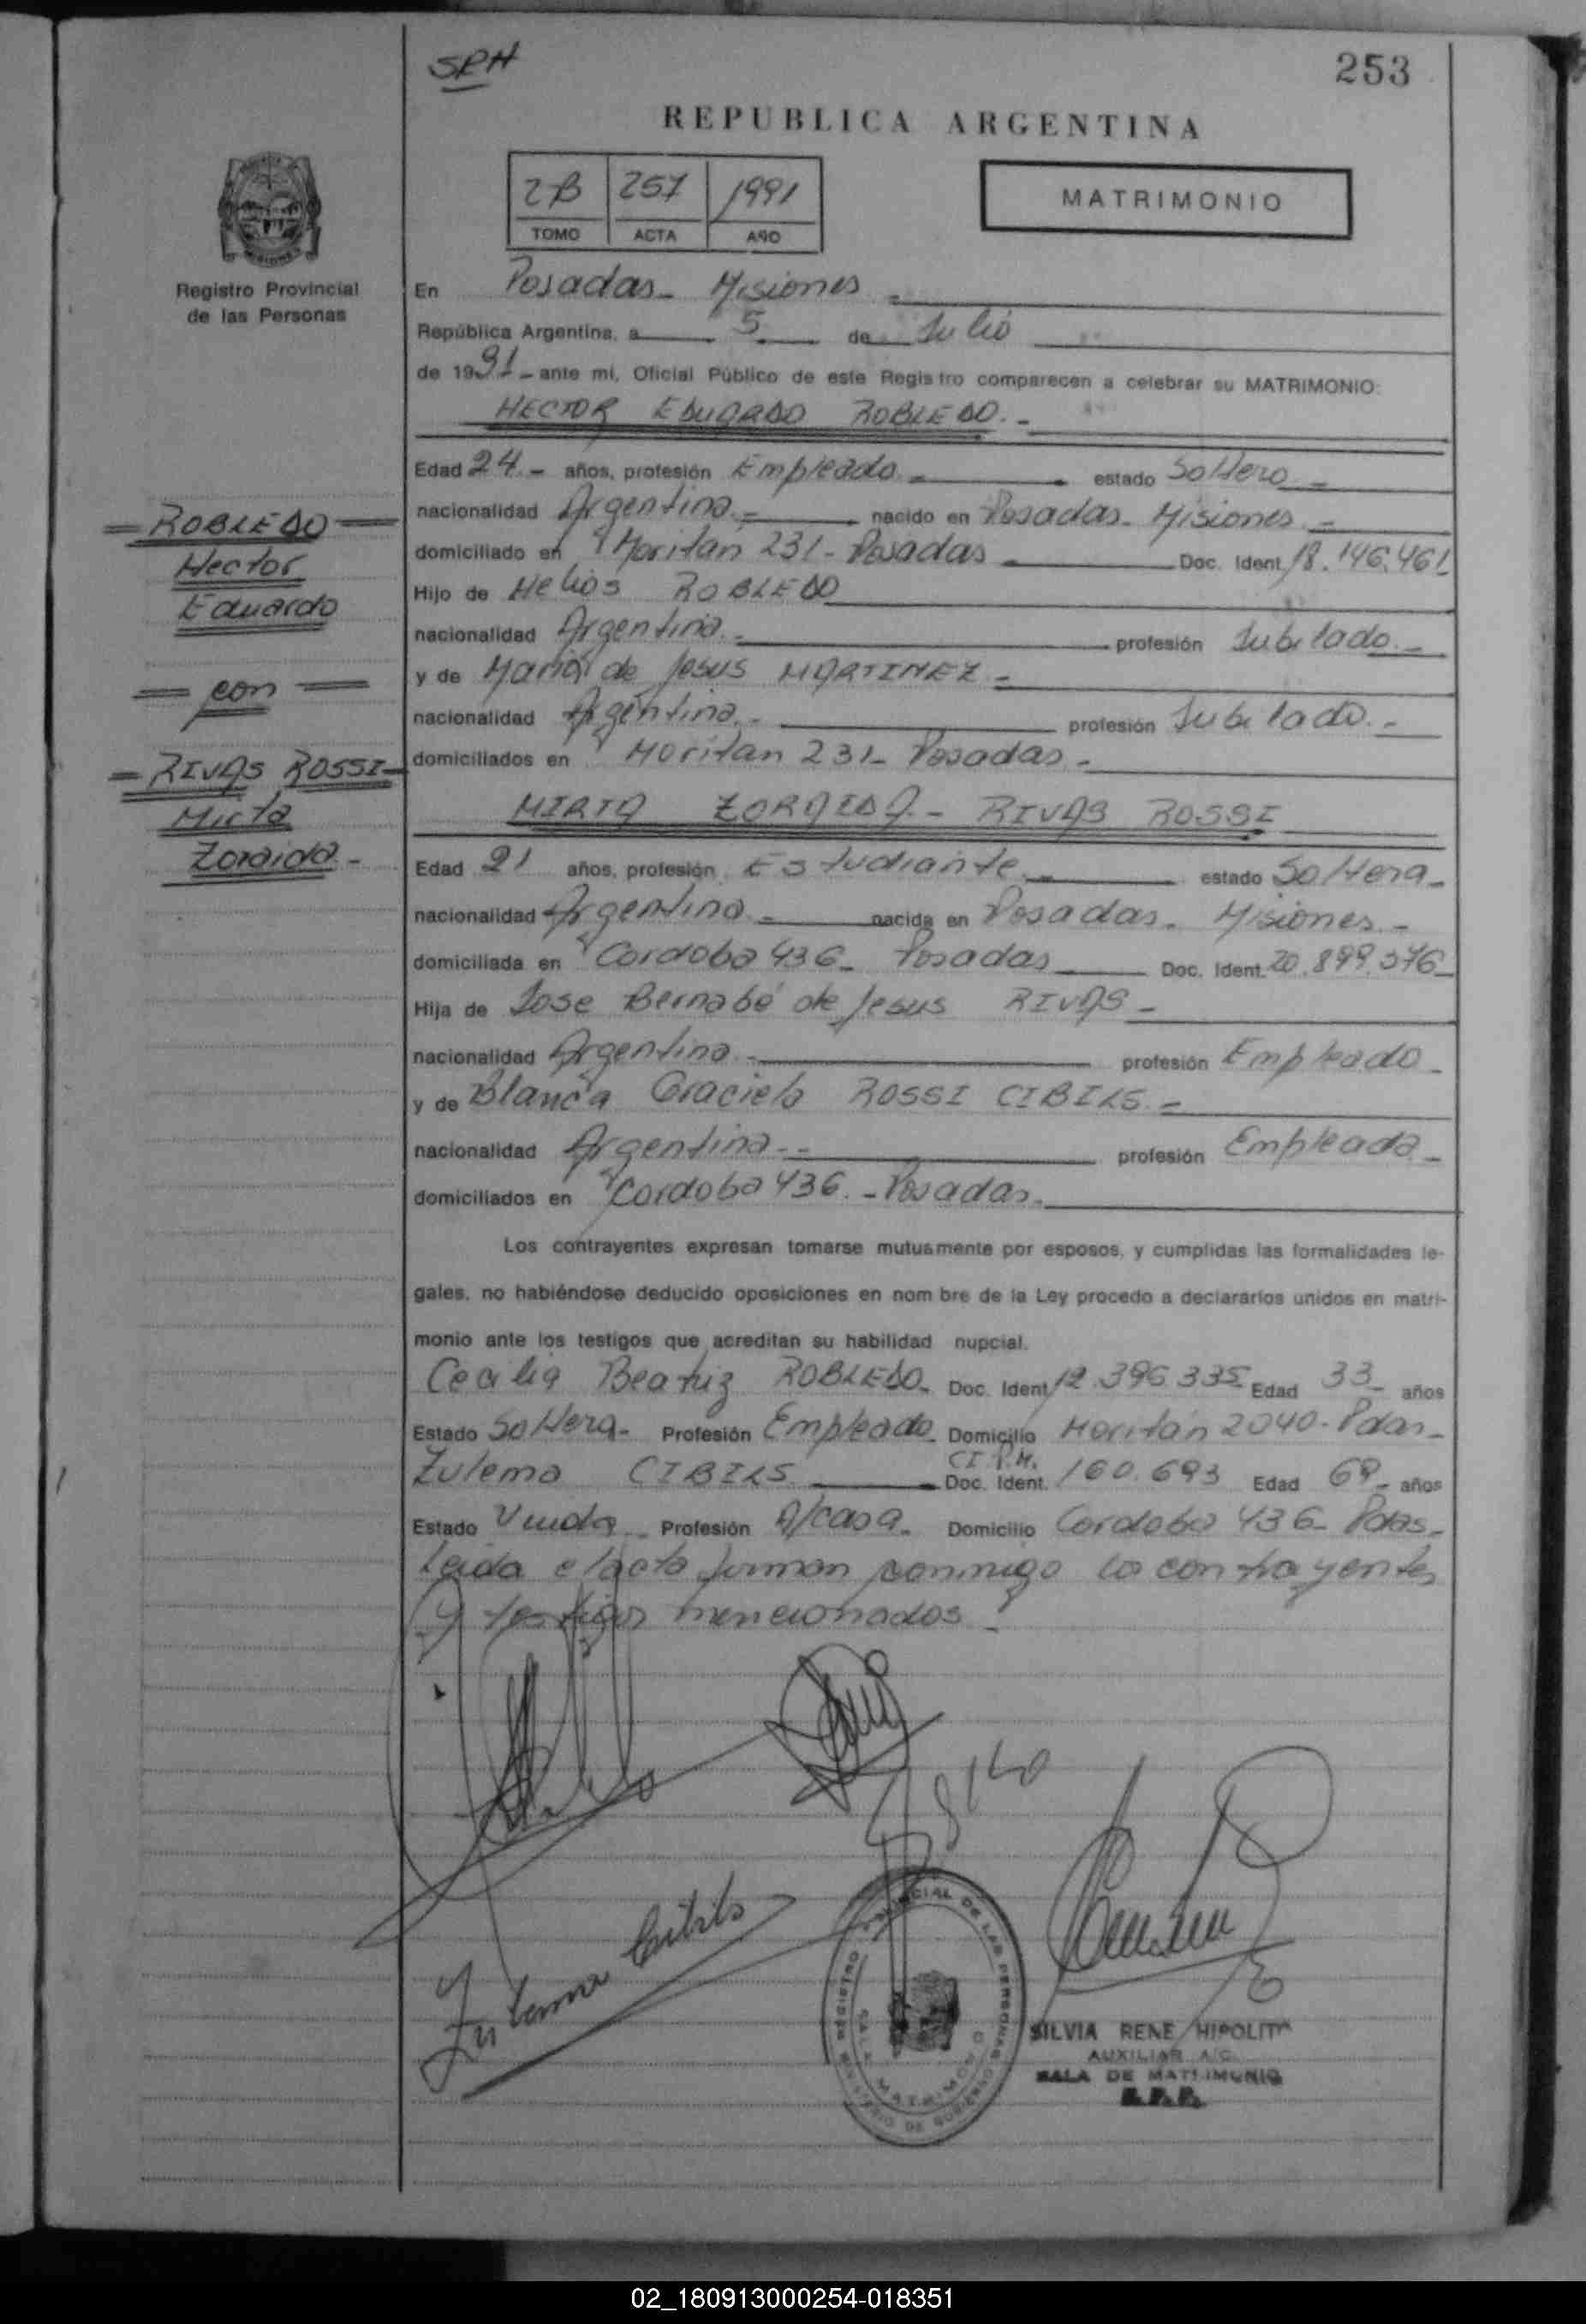 SRH
253
REPUBLICA ARGENTINA
2B 257 1991
TOMO ACTA AÑO
MATRIMONIO
Registro Provincial
de las Personas
En Posadas - Misiones -
República Argentina, a 5 de Julio
de 1991 - ante mi, Oficial Público de este Registro comparecen a celebrar su MATRIMONIO:
HECTOR EDUARDO ROBLEDO. -
Edad 24 - años, profesión Empleado - estado Soltero -
nacionalidad Argentina - nacido en Posadas - Misiones -
domiciliado en Moritan 231 - Posadas Doc. Ident. 18.146.461
Hijo de Helios ROBLEDO
nacionalidad Argentina - profesión Jubilado. -
y de Maria de Jesus MARTINEZ -
nacionalidad Argentina - profesión Jubilado. -
domiciliados en Moritan 231 - Posadas -
= ROBLEDO =
Hector
Eduardo
= con =
= RIVAS ROSSI =
Mirta
Zoraida -
MIRTA ZORAIDA - RIVAS ROSSI
Edad 21 años, profesión Estudiante - estado Soltera -
nacionalidad Argentina - nacida en Posadas - Misiones -
domiciliada en Cordoba 436 - Posadas Doc. Ident. 20.899.576
Hija de Jose Bernabé de Jesus RIVAS -
nacionalidad Argentina - profesión Empleado -
y de Blanca Graciela ROSSI CIBILS -
nacionalidad Argentina - profesión Empleada -
domiciliados en Cordoba 436 - Posadas -
Los contrayentes expresan tomarse mutuamente por esposos, y cumplidas las formalidades le-
gales, no habiéndose deducido oposiciones en nom bre de la Ley procedo a declararlos unidos en matri-
monio ante los testigos que acreditan su habilidad nupcial.
Cecilia Beatriz ROBLEDO - Doc. Ident. 12.396.335 Edad 33 - años
Estado Soltera - Profesión Empleado - Domicilio Moritán 2040 - Pdas -
CI P.M.
Zulema CIBILS Doc. Ident. 160.693 Edad 69 - años
Estado Viuda - Profesión A/casa - Domicilio Cordoba 436 - Pdas -
Leida el acta firman conmigo los contrayentes
y testigos mencionados -
Zulema Cibils
REGISTRO PROVINCIAL DE LAS PERSONAS
MINISTERIO DE GOBIERNO
SALA MATRIMONIO
SILVIA RENE HIPOLITA
AUXILIAR A/C
SALA DE MATRIMONIO
R.P.P.
02_180913000254-018351